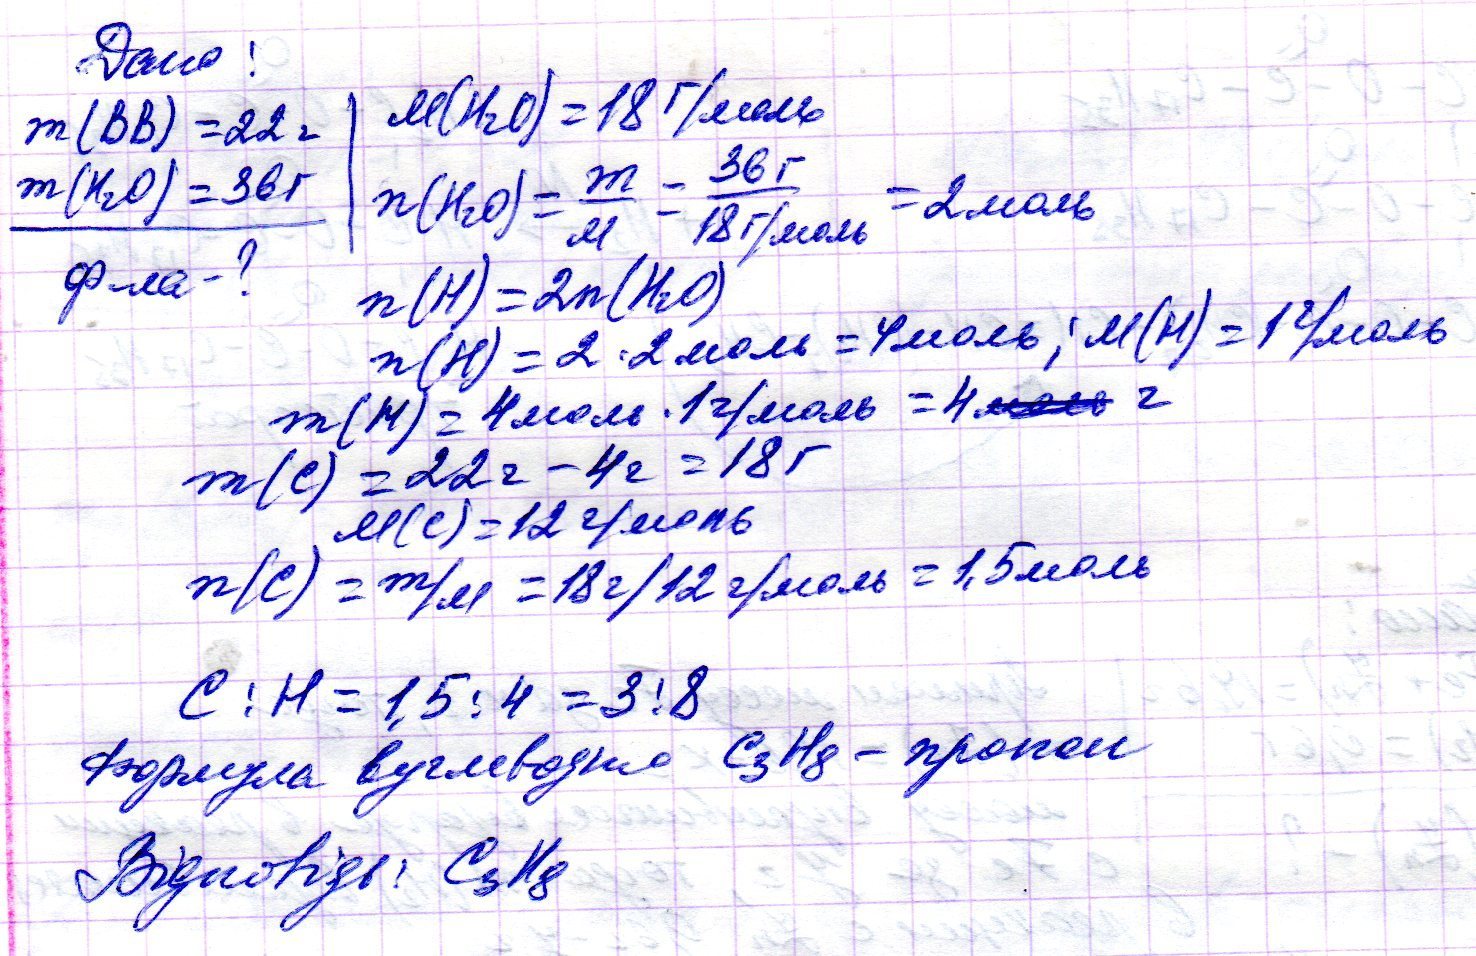 Дано:
m(ВВ) = 22г
m(H₂O) = 36г
ф-ла - ?
M(H₂O) = 18 г/моль
n(H₂O) = m/M = 36г/18г/моль = 2 моль
n(H) = 2n(H₂O)
n(H) = 2 · 2 моль = 4 моль; M(H) = 1 г/моль
m(H) = 4 моль · 1 г/моль = 4 г
m(C) = 22г - 4г = 18г
M(C) = 12 г/моль
n(C) = m/M = 18г/12 г/моль = 1,5 моль
C : H = 1,5 : 4 = 3 : 8
Формула вуглеводню C₃H₈ - пропан
Відповідь: C₃H₈